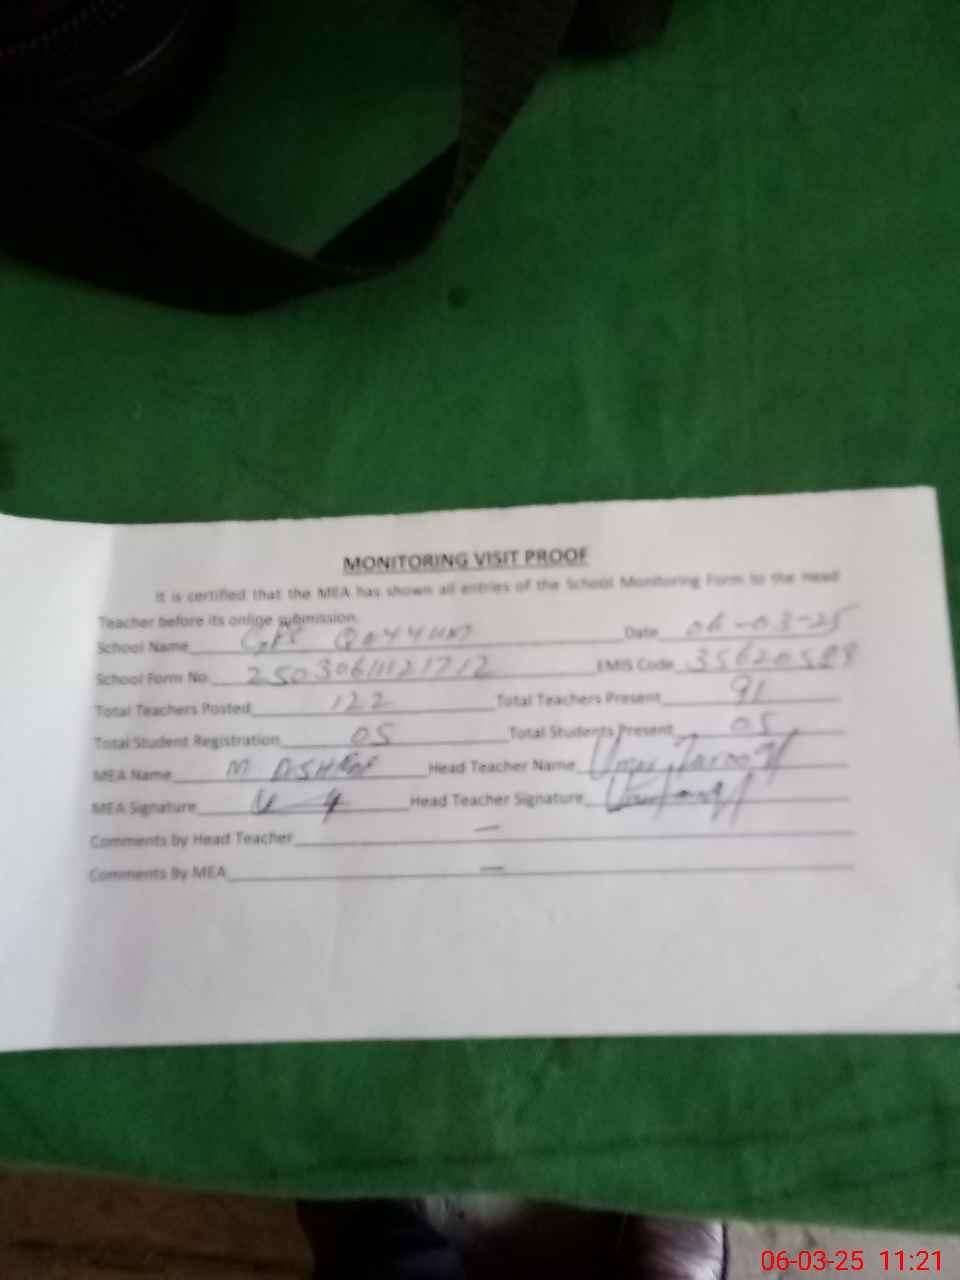 MONITORING VISIT PROOF
It is certified that the MEA has shown all entries of the School Monitoring Form to the Head
Teacher before its online submission.
School Name GPS Date 06-03-25
School Form No. 25030611121712 EMIS Code
Total Teachers Posted 122 Total Teachers Present 91
Total Student Registration 05 Total Students Present 05
MEA Name M ASHRAF Head Teacher Name Umer Farooq
MEA Signature Head Teacher Signature
Comments by Head Teacher —
Comments By MEA —
06-03-25 11:21